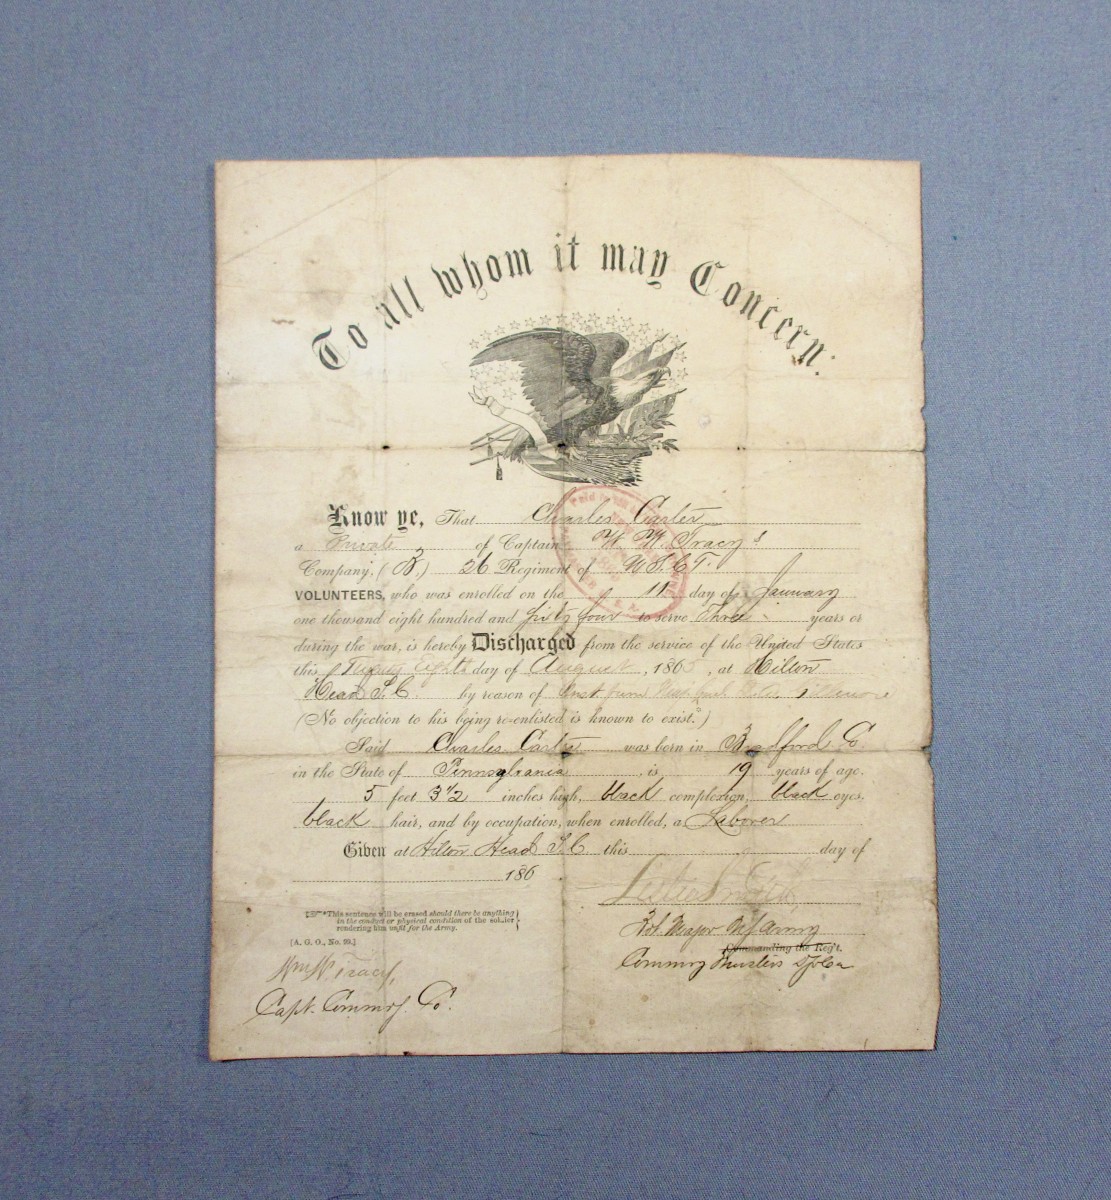 To all whom it may Concern:
Know ye, That Charles Carter
a Private of Captain W. W. Tracy's
Company, (B.) 26 Regiment of U.S.C.T.
VOLUNTEERS, who was enrolled on the 11 day of January
one thousand eight hundred and sixty four to serve Three years or
during the war, is hereby Discharged from the service of the United States
this Twenty Eighth day of August, 1865, at Hilton
Head S.C. by reason of
(No objection to his being re-enlisted is known to exist.*)
Said Charles Carter was born in Bradford Co.
in the State of Pennsylvania, is 19 years of age,
5 feet 3 1/2 inches high, black complexion, black eyes,
black hair, and by occupation, when enrolled, a Laborer
Given at Hilton Head S.C. this day of
186
☞*This sentence will be erased should there be anything
in the conduct or physical condition of the soldier
rendering him unfit for the Army.
[A. G. O., No. 99.]
Wm W Tracy,
Capt. Commdg. Co.
Bvt. Major US Army
Commanding the Reg't.
Paid in full